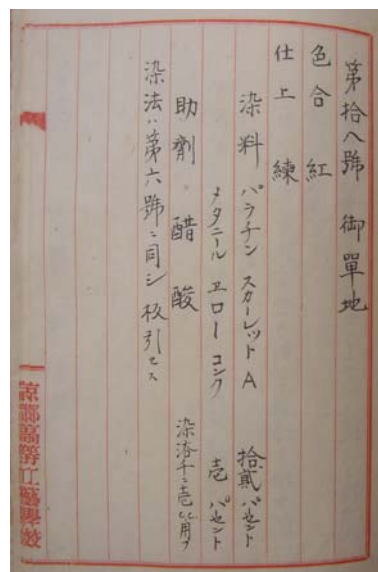 第拾八號 御單地
色合 紅
仕上 練
染料 パラチン スカーレット A 拾貳パセント
メタニール ヱロー コンク 壱パセント
助劑 醋酸 染浴千ニ壱㏄用フ
染法ハ第六號ニ同シ板引セス
京都高等工藝學校